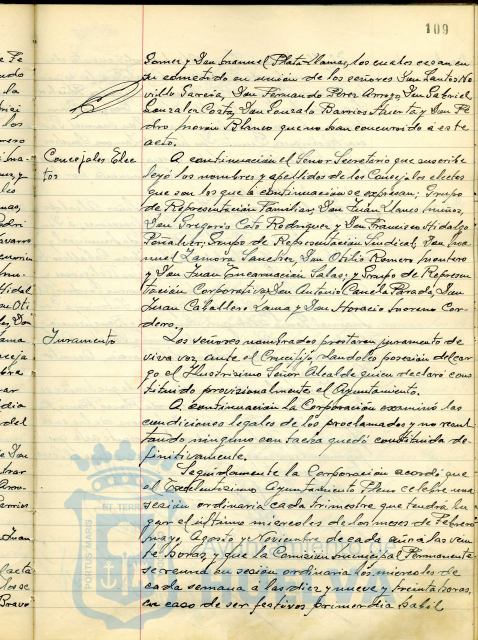 109
Gomez y Don Manuel Plata Llamas, los cuales cesan en
su cometido en unión de los señores Don Santos No
villo García, Don Fernando Pérez Arroyo, Don Gabriel
Gonzalez Costa, Don Gonzalo Barrios Huerta y Don Pe
dro Morón Blanco que no han concurrido a este
acto.
Concejales Elec
tos
A continuación el Señor Secretario que suscribe
leyó los nombres y apellidos de los Concejales electos
que son los que a continuación se expresan; Grupo
de Representación Familiar, Don Juan Llanes Muñoz,
Don Gregorio Coto Rodriguez y Don Francisco Hidalgo
Peñalver; Grupo de Representación Sindical, Don Ma
nuel Zamora Sanchez, Don Otilio Romero Montero
y Don Juan Encarnación Salas; y Grupo de Represen
tación Corporativa, Don Antonio Canela Parada, Don
Juan Caballero Lama y Don Horacio Moreno Cor
dero.
Juramento
Los señores nombrados prestaron juramento de
viva voz, ante el Crucifijo, dandoles posesión del car
go el Ilustrísimo Señor Alcalde quien declaró cons
tituido provisionalmente el Ayuntamiento.
A continuación la Corporación examinó las
condiciones legales de los proclamados y no resul
tando ninguno con tacha quedó constituida de-
finitivamente.
Seguidamente la Corporación acordó que
el Excelentísimo Ayuntamiento Pleno celebre una
sesión ordinaria cada trimestre que tendrá lu
gar el último miercoles de los meses de Febrero
Mayo, Agosto y Noviembre de cada año a las vein
te horas, y que la Comisión Municipal Permanente
se reuna en sesión ordinaria los miercoles de
cada semana a las diez y nueve y treinta horas,
en caso de ser festivos primer dia habil
ET TERR
PORTUS MARIS